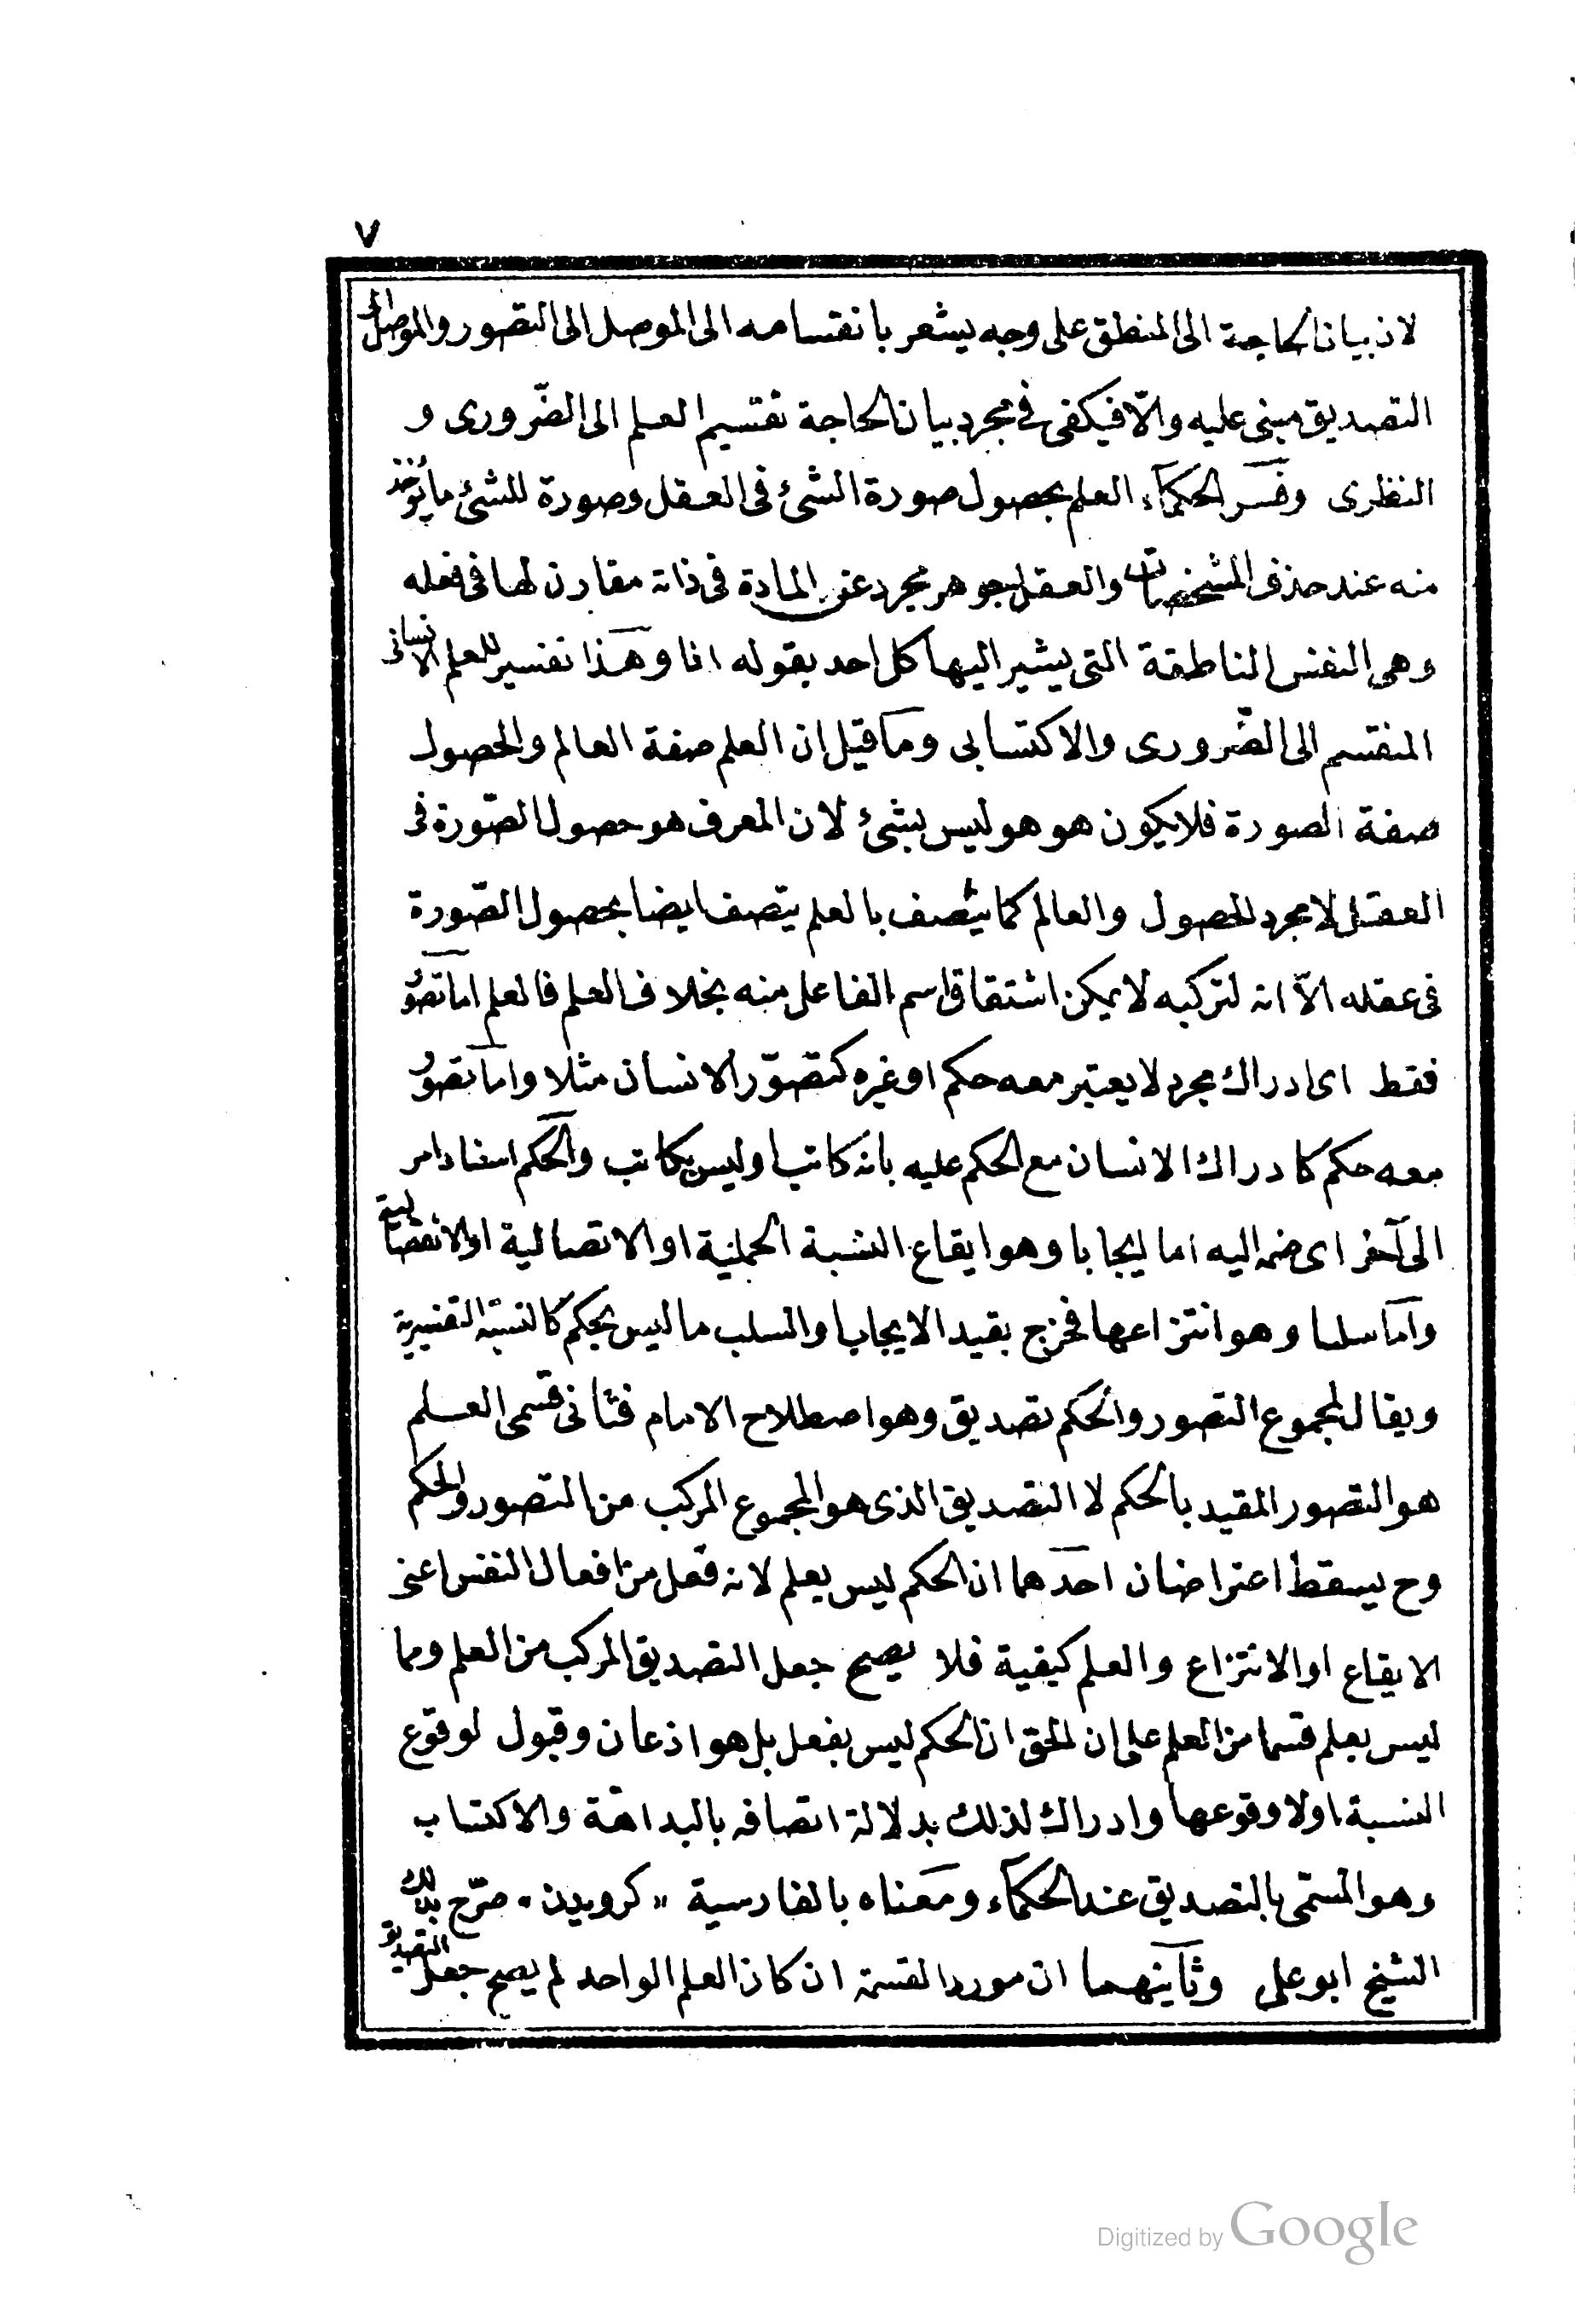 ٧
لان بيان الحاجة الى المنطق على وجه يشعر بانقسامه الى الموصل الى التصور والموصل الى
التصديق مبنى عليه والّا فيكفى فى مجرد بيان الحاجة تقسيم العلم الى الضّرورى و
النظرى وفسر الحكماء العلم بحصول صورة الشئ فى العقل وصورة للشئ ما يؤخذ
منه عند حذف المشخصات والعقل جوهر مجرد عن المادة فى ذاته مقارن لها فى فعله
وهى النفس الناطقة التى يشير اليها كل احد بقوله انا وهذا تفسير للعلم الانسانى
المنقسم الى الضّرورى والاكتسابى وما قيل ان العلم صفة العالم والحصول
صفة الصورة فلا يكون هو هو ليس بشئ لان المعرف هو حصول الصّورة فى
العقل لا مجرد الحصول والعالم كما يتّصف بالعلم يتصف ايضا بحصول الصّورة
فى عقله الّا انه لتركبه لا يمكن اشتقاق اسم الفاعل منه بخلاف العلم فالعلم اما تصوُّر
فقط اى ادراك مجرد لا يعتبر معه حكم او غيره كتصوّر الانسان مثلا واما تصوُّر
معه حكم كادراك الانسان مع الحكم عليه بانه كاتب او ليس بكاتب والحكم اسناد امر
الى آخر اى ضمه اليه اما ايجابا وهو ايقاع النسبة الحملية او الاتصالية او الانفصالية
واما سلبا وهو انتزاعها فخرج بقيد الايجاب والسلب ما ليس بحكم كالنسبة التقييدية
ويقال لمجموع التصور والحكم تصديق وهو اصطلاح الامام فثانى قسمى العلم
هو التصور المقيد بالحكم لا التصديق الذى هو المجموع المركب من التصور والحكم
وح يسقط اعتراضان احدهما ان الحكم ليس بعلم لانه فعل من افعال النفس اعنى
الايقاع او الانتزاع والعلم كيفية فلا يصح جعل التصديق المركب من العلم ومما
ليس بعلم قسما من العلم على ان الحق ان الحكم ليس بفعل بل هو اذعان وقبول لوقوع
النسبة او لا وقوعها وادراك لذلك بدلالة اتصافه بالبداهة والاكتساب
وهو المسمّى بالتصديق عند الحكماء ومعناه بالفارسية «كرويدن» صرّح بذلك
الشيخ ابو على وثانيهما ان مورد القسمة ان كان العلم الواحد لم يصح جعل التصديق
Digitized by Google